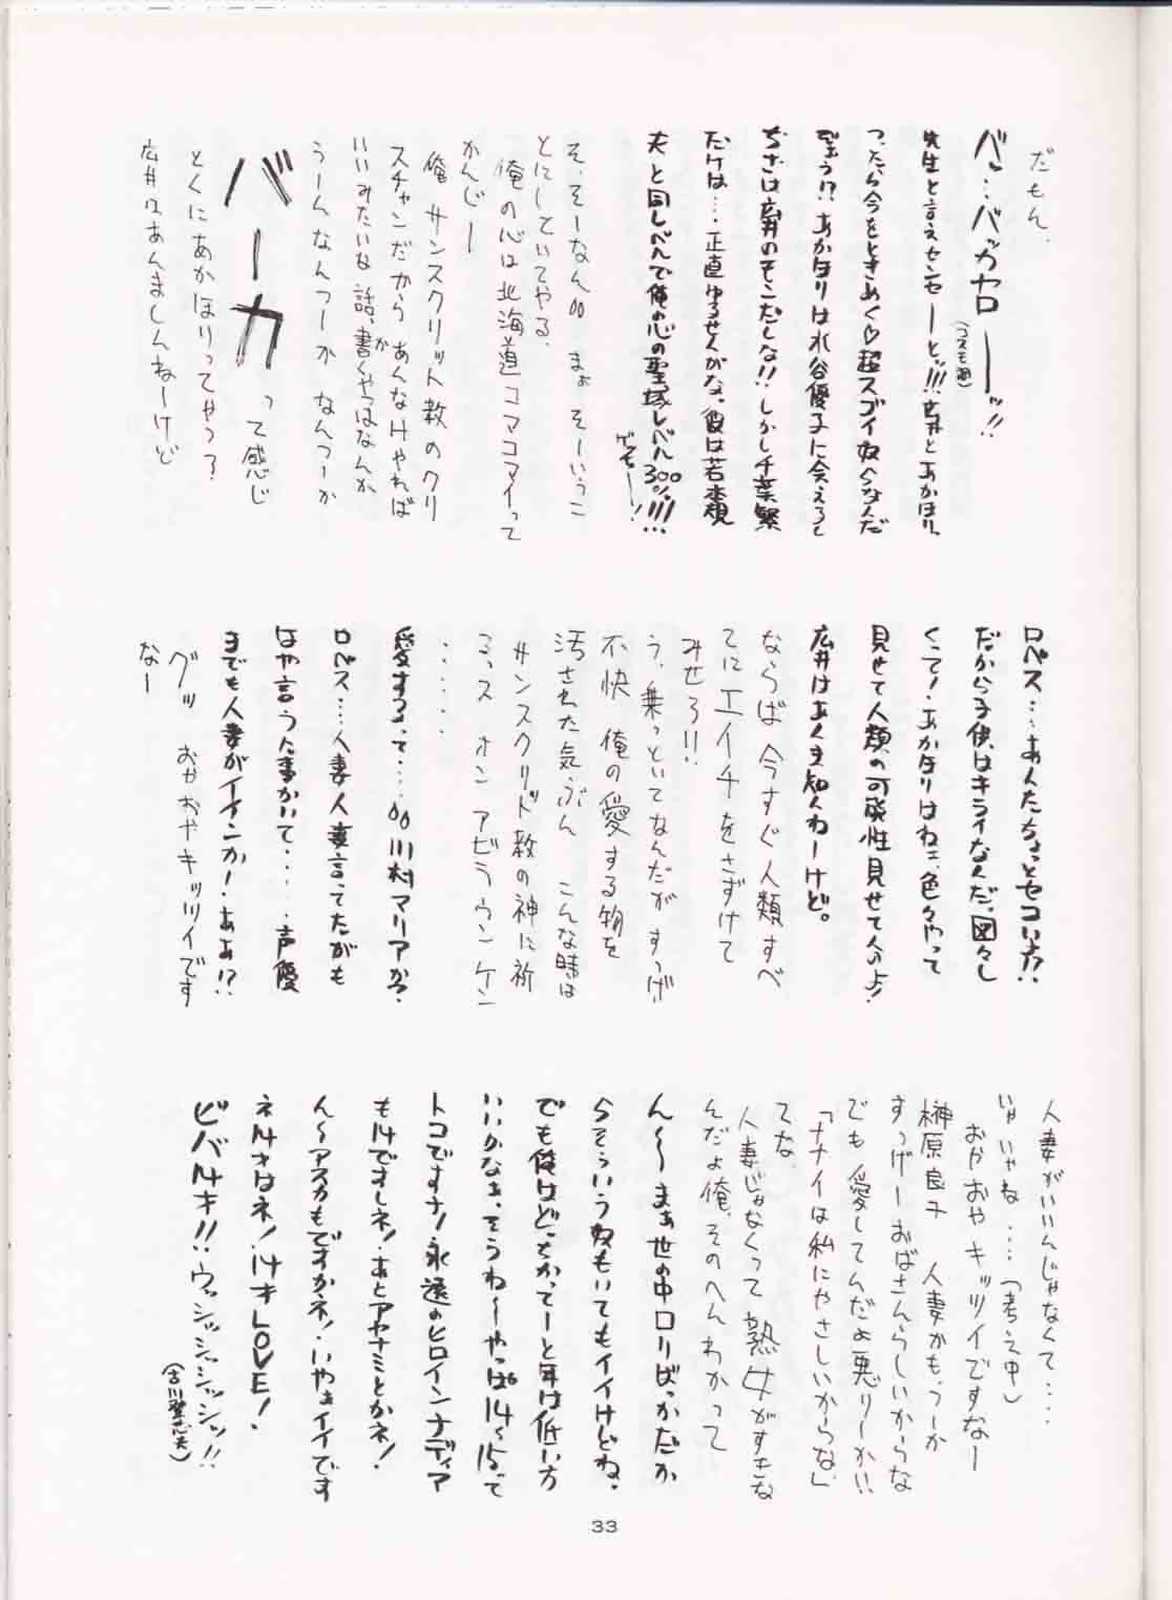 だもん、
バ…バッカヤローーッ!!
(つえも過)
先生と言えセンセーーと!!! 広井とあかほり、
つったら今をときめく♡超スゴイ奴らなんだ
ぞぉう!? あかほりは水谷優子に会えるし
ちさは広井のモンだしな!! しかし千葉繁
だけは…正直ゆるせんがな。彼は若本規
夫と同レベルで俺の心の聖域レベル300%!!!…
ゲヒモー!
そ、そーなん00 まぁ そーいうこ
とにしていてやる、
俺の心は北海道コマコマイって
かんじー
俺 サンスクリット教のクリ
スチャンだから あんなけやれば
いいみたいな話、書くやつはなんか
か
うーんなんつーか なんつーか
バーカ って感じ
とくにあかほりってやつ?
広井はあんましんねーけど
ロペス…あんたちょっとセコい方!?
だから子供はキライなんだ。図々し
くって! あかほりはねェ、色々やって
見せて人類の可能性見せてんのよ!
広井はあんま知んねーけど。
ならば 今すぐ人類すべ
てにエイチをさずけて
みせろ!!
う、乗っといてなんだが すっげ
不快 俺の愛する物を
汚された気ぶん こんな時は
サンスクリット教の神に祈
る、ス オン アビラウンケン
・・・・・
愛するって…00川村マリアか?
ロペス…人妻人妻言ってたがも
はや言うた事かいて…声優
までも人妻がイインか! ああ!?
グッ おやおやキッツイです
なー
人妻がいいんじゃなくて…
いゃ いゃね…(考え中)
おやおや キッツイですなー
榊原良子 人妻かも、つーか
すっげー おばさんらしいからな
でも 愛してんだよ悪りーかい
「ナナイは私にやさしいからな」
てな
人妻じゃなくって 熟女がすきな
んだよ俺、そのへんわかって
ん〜〜まぁ世の中ロリばっかだか
らそういう奴もいてもイイけどね、
でも俺はどっちかってーと年は低い方
いいかなぁ、そうね〜やっぱ14〜15って
トコですナ! 永遠のヒロインナディア
も14ですしネ! あとアヤナミとかネ!
ん〜アスカもですかネ! いやぁイイです
ネ14才はネ! 14才LOVE!
ビバ14才!! ウッシッシッシッシッ!!
(古川登志夫)
33